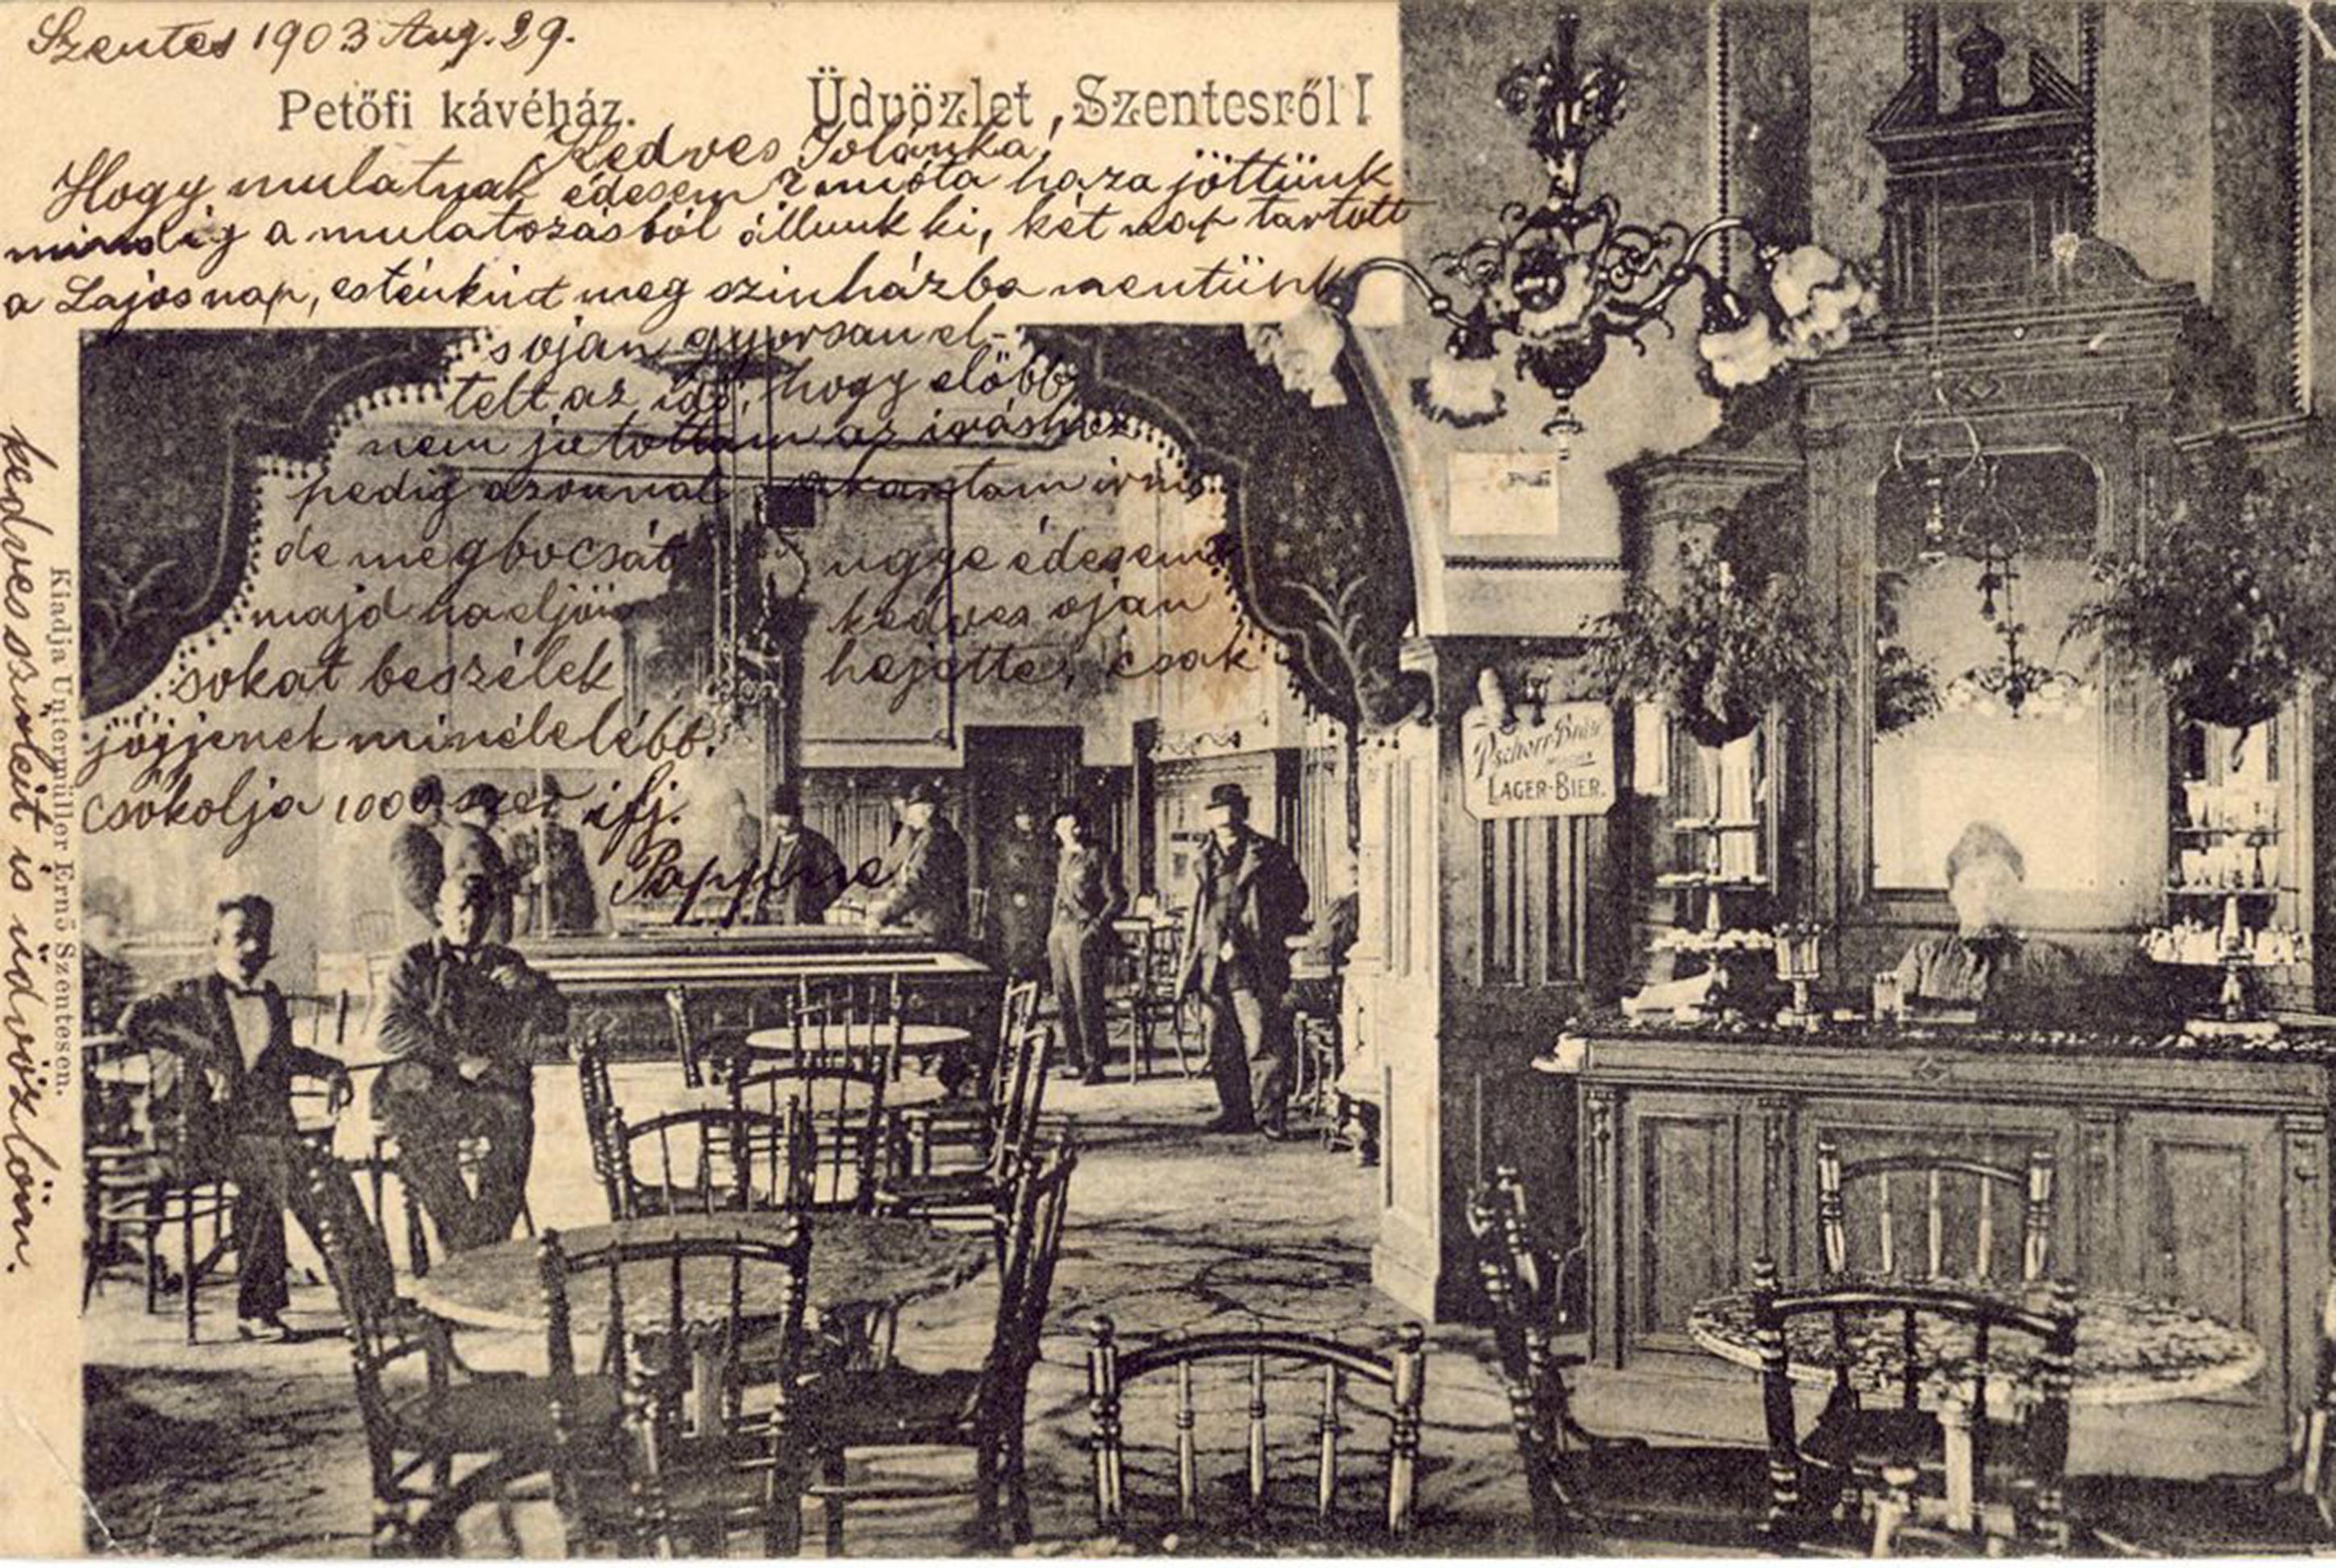 Szentes 1903 Aug. 29.
Petőfi kávéház.
Üdvözlet Szentesről!
Kedves Jolánka,
Hogy mulatnak édesem? mióta haza jöttünk
mindig a mulatozásból állunk ki, két nap tartott
a Lajosnap, esténkint meg szinházba mentünk
s oján gyorsan el-
telt az idő, hogy előbb
nem jutottam az iráshoz
pedig azonnal akartam irni
de megbocsát ugye édesem?
majd ha eljön kedves oján
sokat beszélek hejette, csak
jőjjenek minélelébb.
csókolja 1000 szer ifj.
Pappné
kedves szüleit is üdvözlöm.
Kiadja Untermüller Ernő Szentesen.
Pschorr-Bräu
LAGER-BIER.